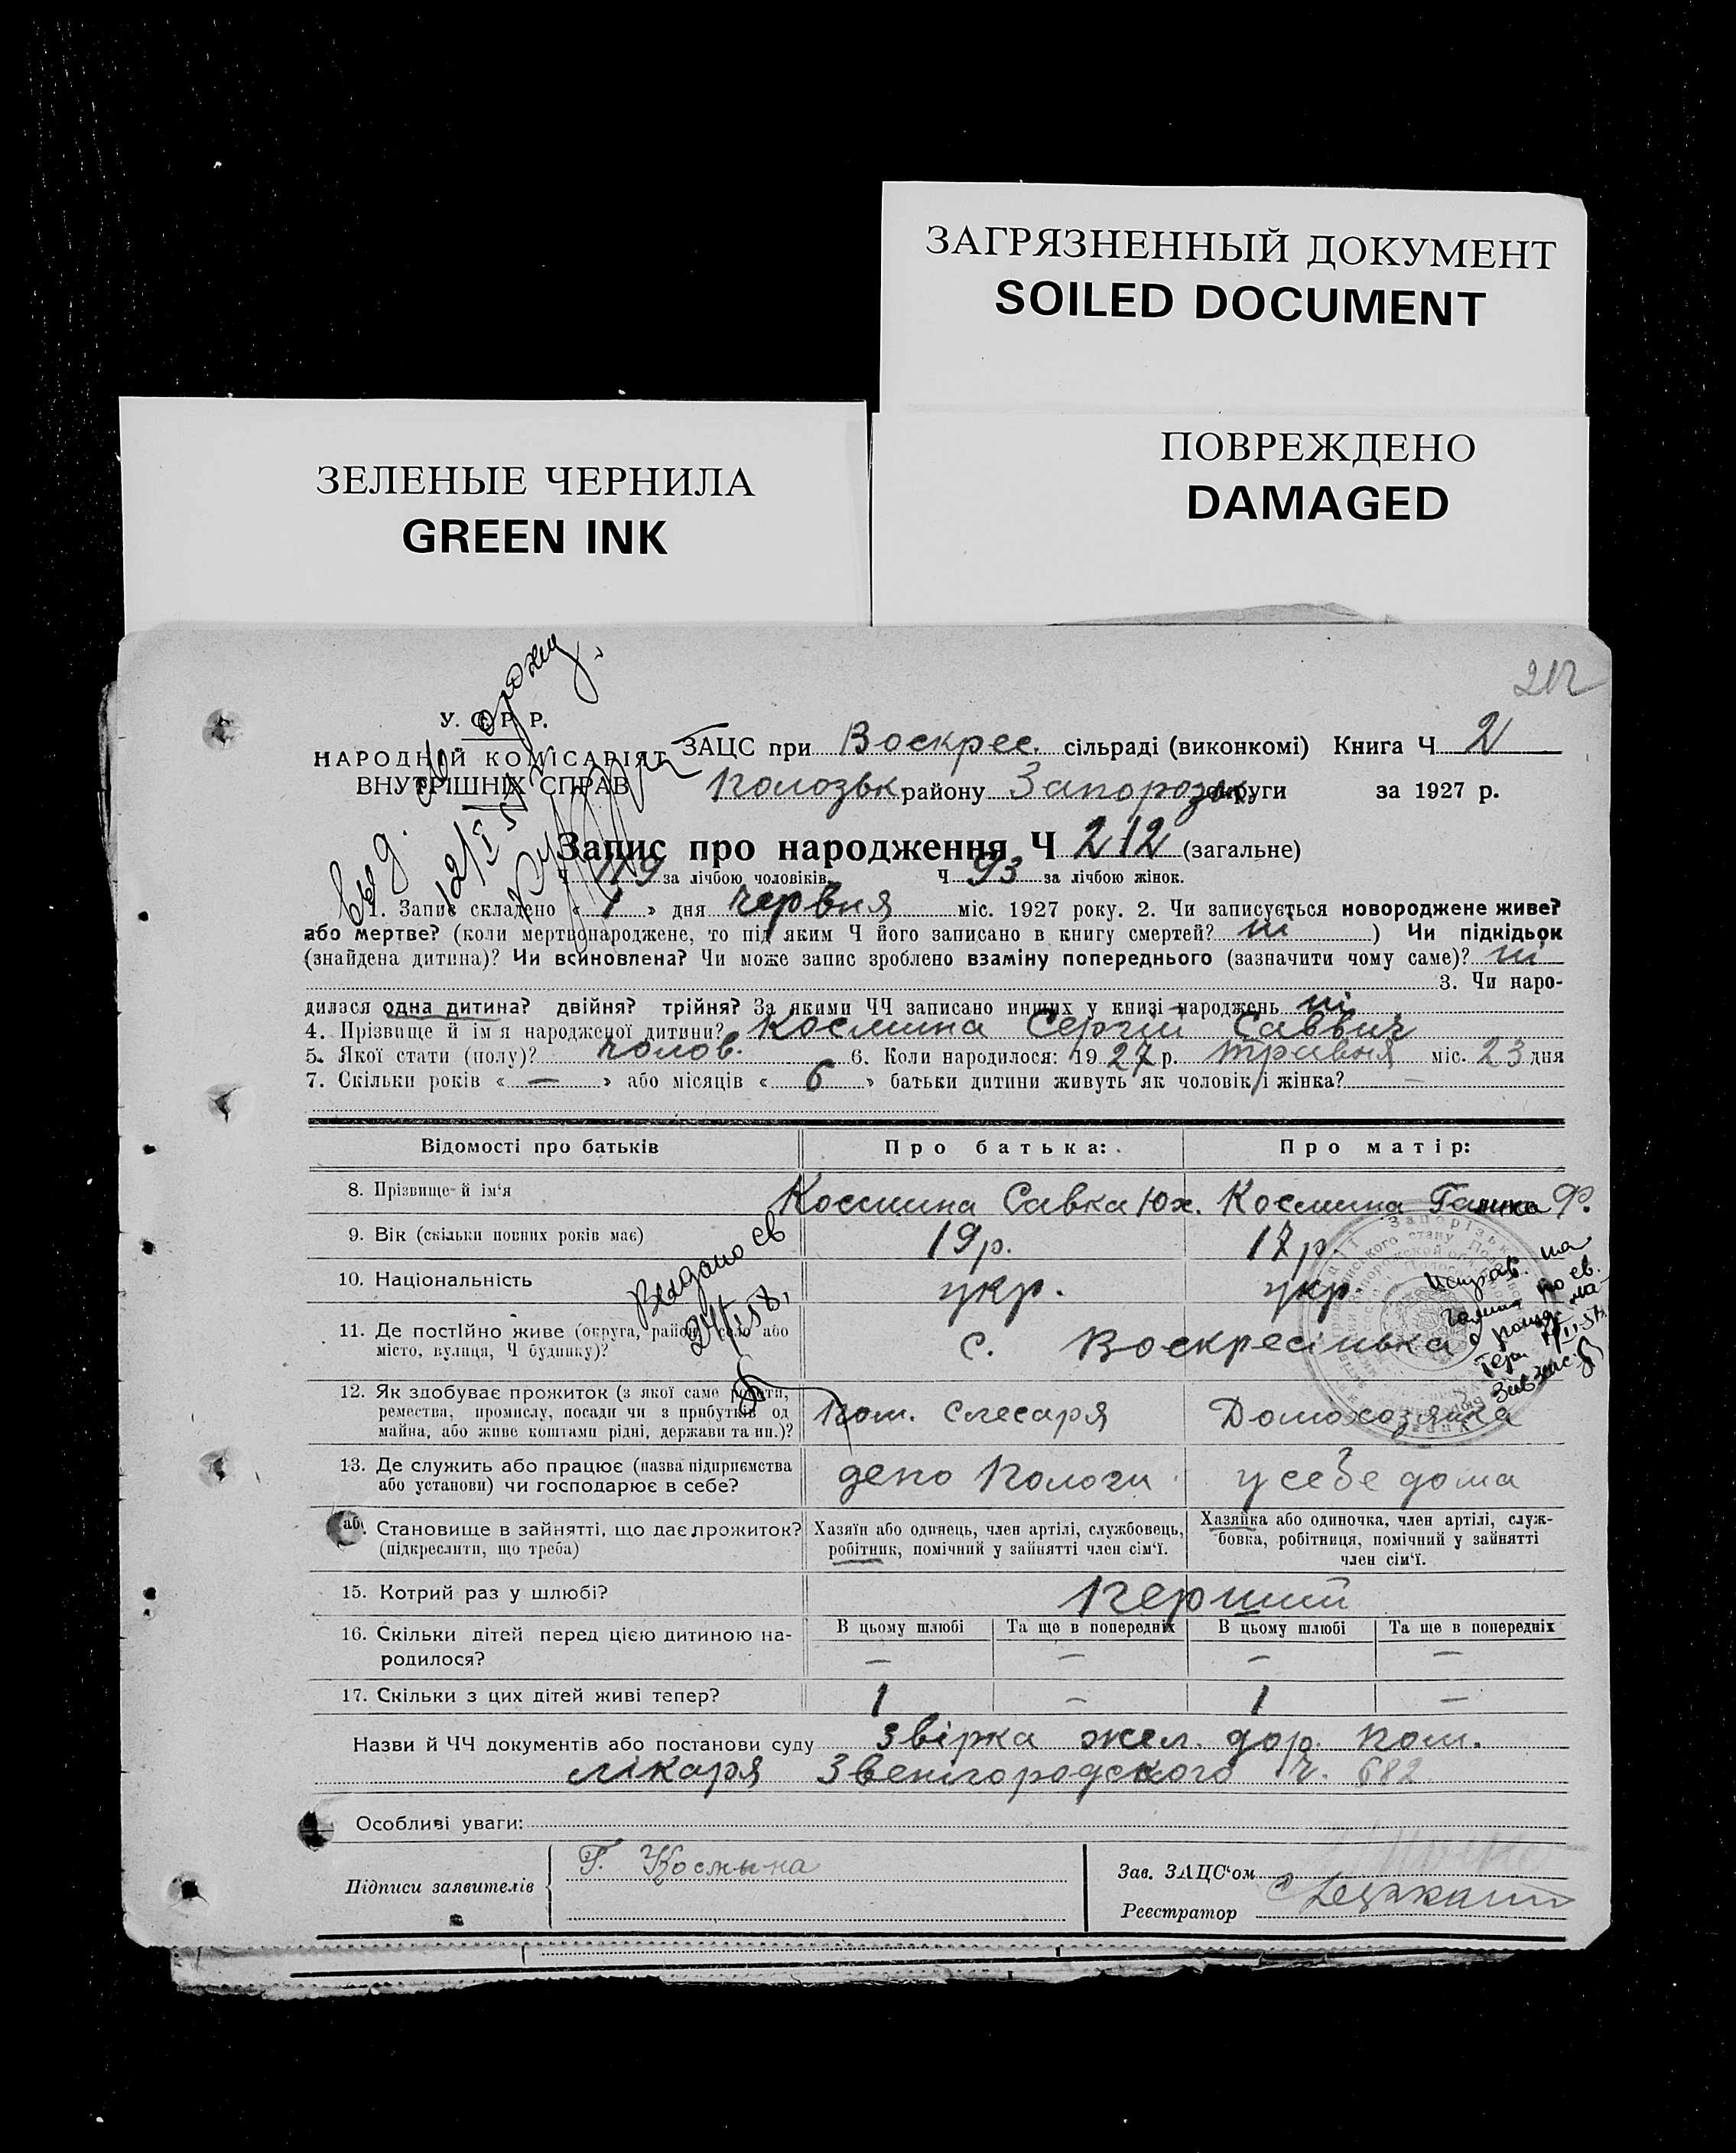 ЗАГРЯЗНЕННЫЙ ДОКУМЕНТ
SOILED DOCUMENT
ЗЕЛЕНЫЕ ЧЕРНИЛА
GREEN INK
ПОВРЕЖДЕНО
DAMAGED
212
У. С. Р. Р.
НАРОДНІЙ КОМІСАРІЯТ
ВНУТРІШНІХ СПРАВ
ЗАЦС при Воскрес. сільраді (виконкомі) Книга Ч 2
Полозьк району Запорозьк. округи за 1927 р.
Запис про народження Ч 212 (загальне)
Ч 119 за лічбою чоловіків. Ч 93 за лічбою жінок.
1. Запис складено « 1 » дня червня міс. 1927 року. 2. Чи записується новороджене живе?
або мертве? (коли мертвонароджене, то під яким Ч його записано в книгу смертей? ні ) Чи підкідьок
(знайдена дитина)? Чи всиновлена? Чи може запис зроблено взаміну попереднього (зазначити чому саме)? ні
3. Чи наро-
дилася одна дитина? двійня? трійня? За якими ЧЧ записано инших у книзі народжень ні
4. Прізвище й ім'я народженої дитини? Космина Сергій Саввич
5. Якої стати (полу)? чолов. 6. Коли народилося: 1927 р. травня міс. 23 дня
7. Скільки років « — » або місяців « 6 » батьки дитини живуть як чоловік і жінка? —
Відомості про батьків Про батька: Про матір:
8. Прізвище й ім'я Космина Савка Юх. Космина Ганна Ф.
9. Вік (скільки повних років має) 19 р. 17 р.
10. Національність укр. укр.
Видано св
24/I 58.
Исправ. на
11. Де постійно живе (округа, район, село або
місто, вулиця, Ч будинку)? с. Воскресінька
12. Як здобуває прожиток (з якої саме роботи,
ремества, промислу, посади чи з прибутків од
майна, або живе коштами рідні, держави та ин.)? пом. слесаря Домохозяйка
13. Де служить або працює (назва підприємства
або установи) чи господарює в себе? депо Пологи у себе дома
Становище в зайнятті, що дає прожиток?
(підкреслити, що треба)
Хазяїн або одинець, член артілі, службовець,
робітник, помічний у зайнятті член сім'ї.
Хазяйка або одиночка, член артілі, служ-
бовка, робітниця, помічний у зайнятті
член сім'ї.
15. Котрий раз у шлюбі? перший
16. Скільки дітей перед цією дитиною на-
родилося?
В цьому шлюбі Та ще в попередніх В цьому шлюбі Та ще в попередніх
— — — —
17. Скільки з цих дітей живі тепер? 1 — 1 —
Назви й ЧЧ документів або постанови суду звірка жел. дор. пом.
лікаря Звенігородського Ч. 682
Особливі уваги:
Підписи заявителів Г. Космына
Зав. ЗАЦС'ом
Реєстратор